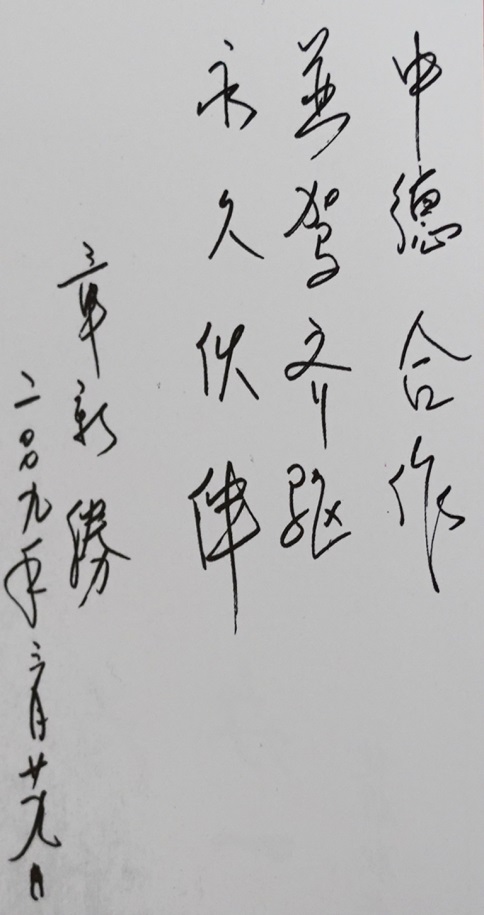 中德合作
並驾齐驱
永久伙伴
章新勝
二〇〇九年三月廿九日